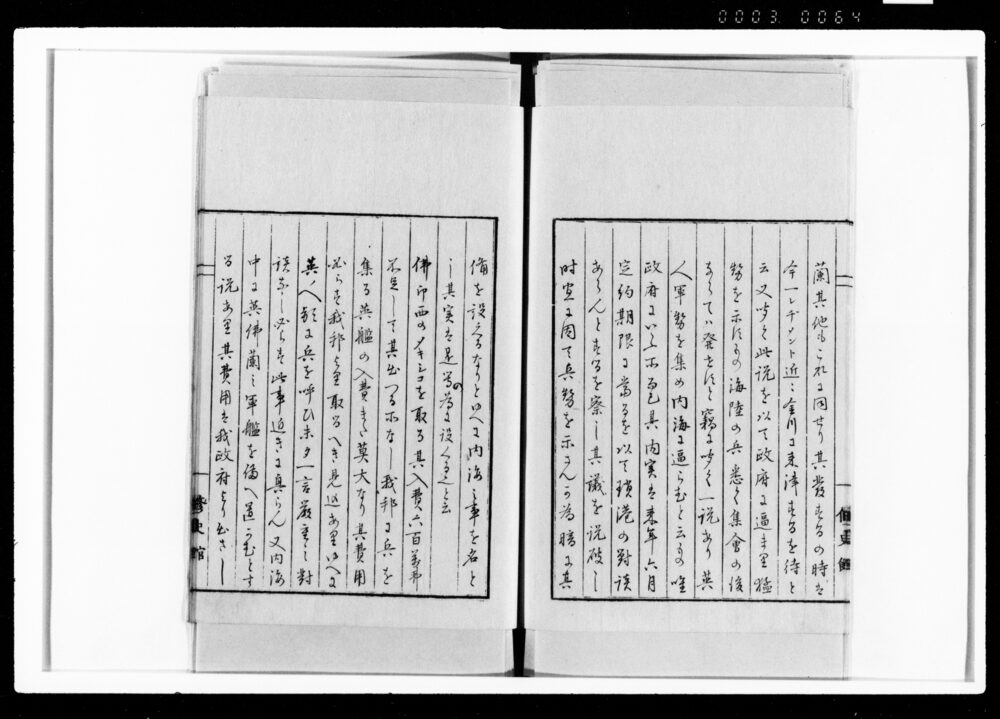 0003 0064
蘭其他もこれに同せり其發するの時は
今一レチメント近々金川に来津するを待と
云又聞く此説を以て政府に逼まり猛
勢を示すもの海陸の兵悉く集會の後
ならては発せすと竊に聞く一説あり英
人軍勢を集め内海に逼らむと云もの唯
政府にいふ所也其内実は来年六月
定約期限に當るを以て鎖港の對談
あらんとするを察し其議を説破し
時宜に因て兵勢を示さんか為暗に其
修史館
備を設るなりと故に内海之事を名と
し其実は是等の為に設くると云
佛印西のメキシコを取る其入費六百萬弗
不足して其出つる所なし我邦に兵を
集る英艦の入費また莫大なり其費用
必らす我邦より取るへき見込あり故に
英人頻に兵を呼ひ未タ一言厳重之對
談なし必らす此事近きに具らん又内海
中に英佛蘭之軍艦を備へ置かむとす
る説あり其費用は我政府より出さし
修史館